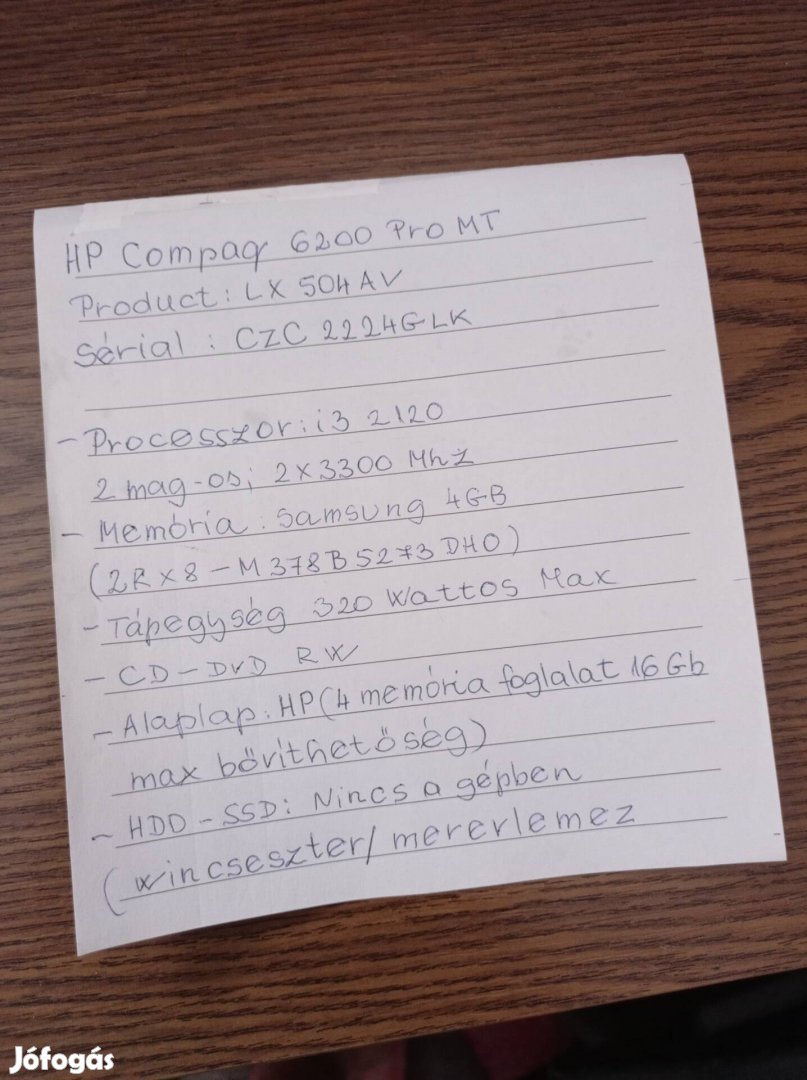 HP Compaq 6200 Pro MT
Product: LX 504AV
Sérial: CZC 2224GLK
- Processzor: i3 2120
2 mag-os; 2x3300 Mhz
- Memória: Samsung 4GB
(2Rx8 - M378B5273DH0)
- Tápegység 320 Wattos Max
- CD-DVD RW
- Alaplap: HP (4 memória foglalat 16Gb
max bővíthetőség)
- HDD-SSD: Nincs a gépben
(wincseszter/mererlemez
Jófogás